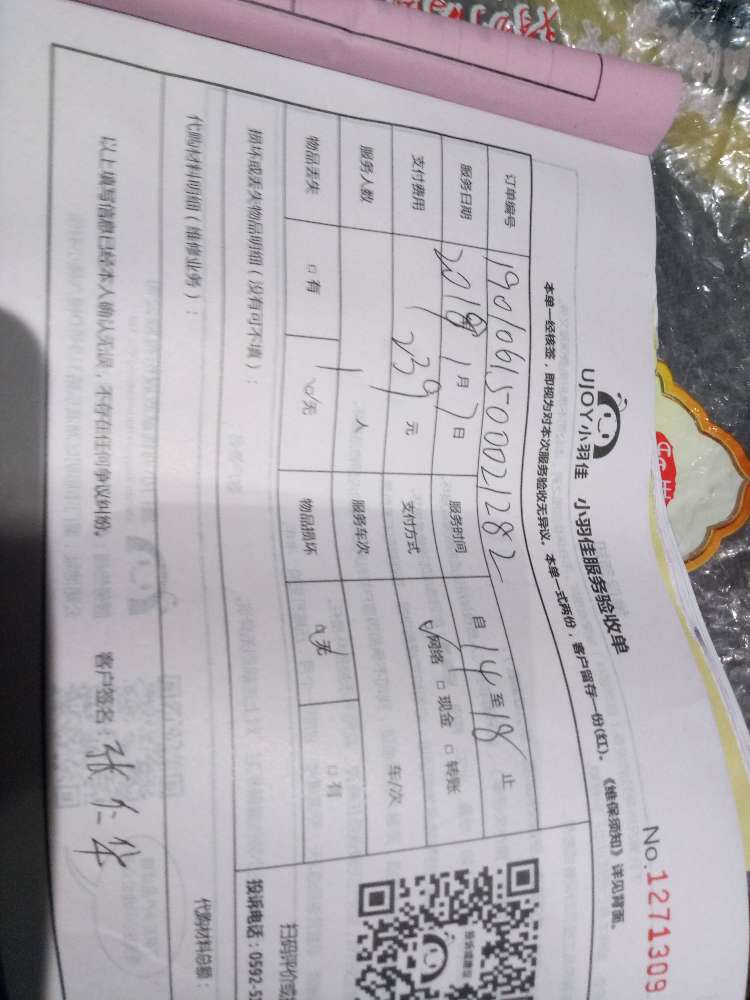 No.1271309
UJOY小羽佳 小羽佳服务验收单
本单一经核签，即视为对本次服务验收无异议。本单一式两份，客户留存一份(红)。《维保须知》详见背面。
订单编号 1901061500021282
服务日期 2019年1月7日 服务时间 自14至18止
支付费用 239元 支付方式 ☑网络 □现金 □转账
服务人数 1人 服务车次 车/次
物品丢失 □有 ☑无 物品损坏 ☑无 □有
损坏或丢失物品明细（没有可不填）：
扫码评价或
投诉电话：0592-5
代购材料明细（维修业务）： 代购材料总额：
以上填写信息已经本人确认无误，不存在任何争议纠纷。 客户签名：张仁华